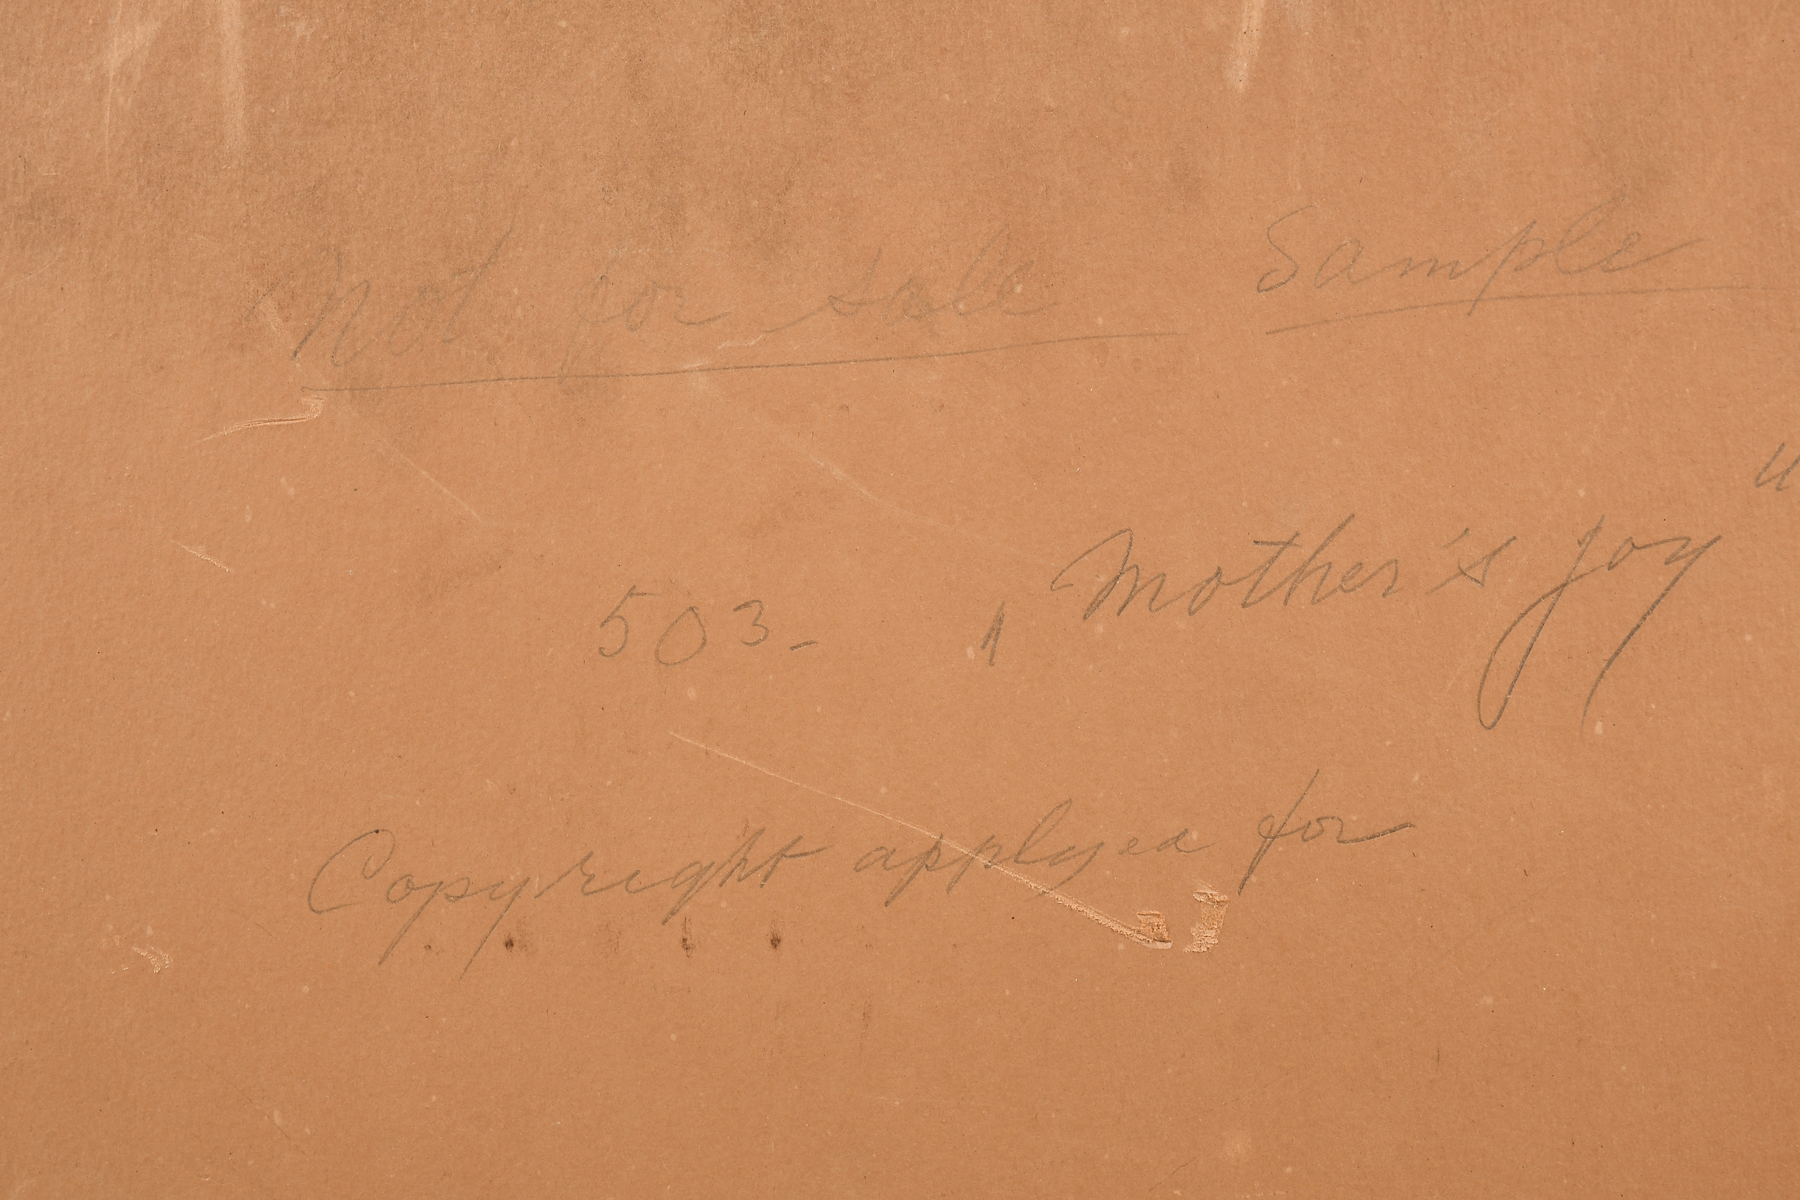 Not for sale Sample
503- "Mother's joy"
Copyright applyed for